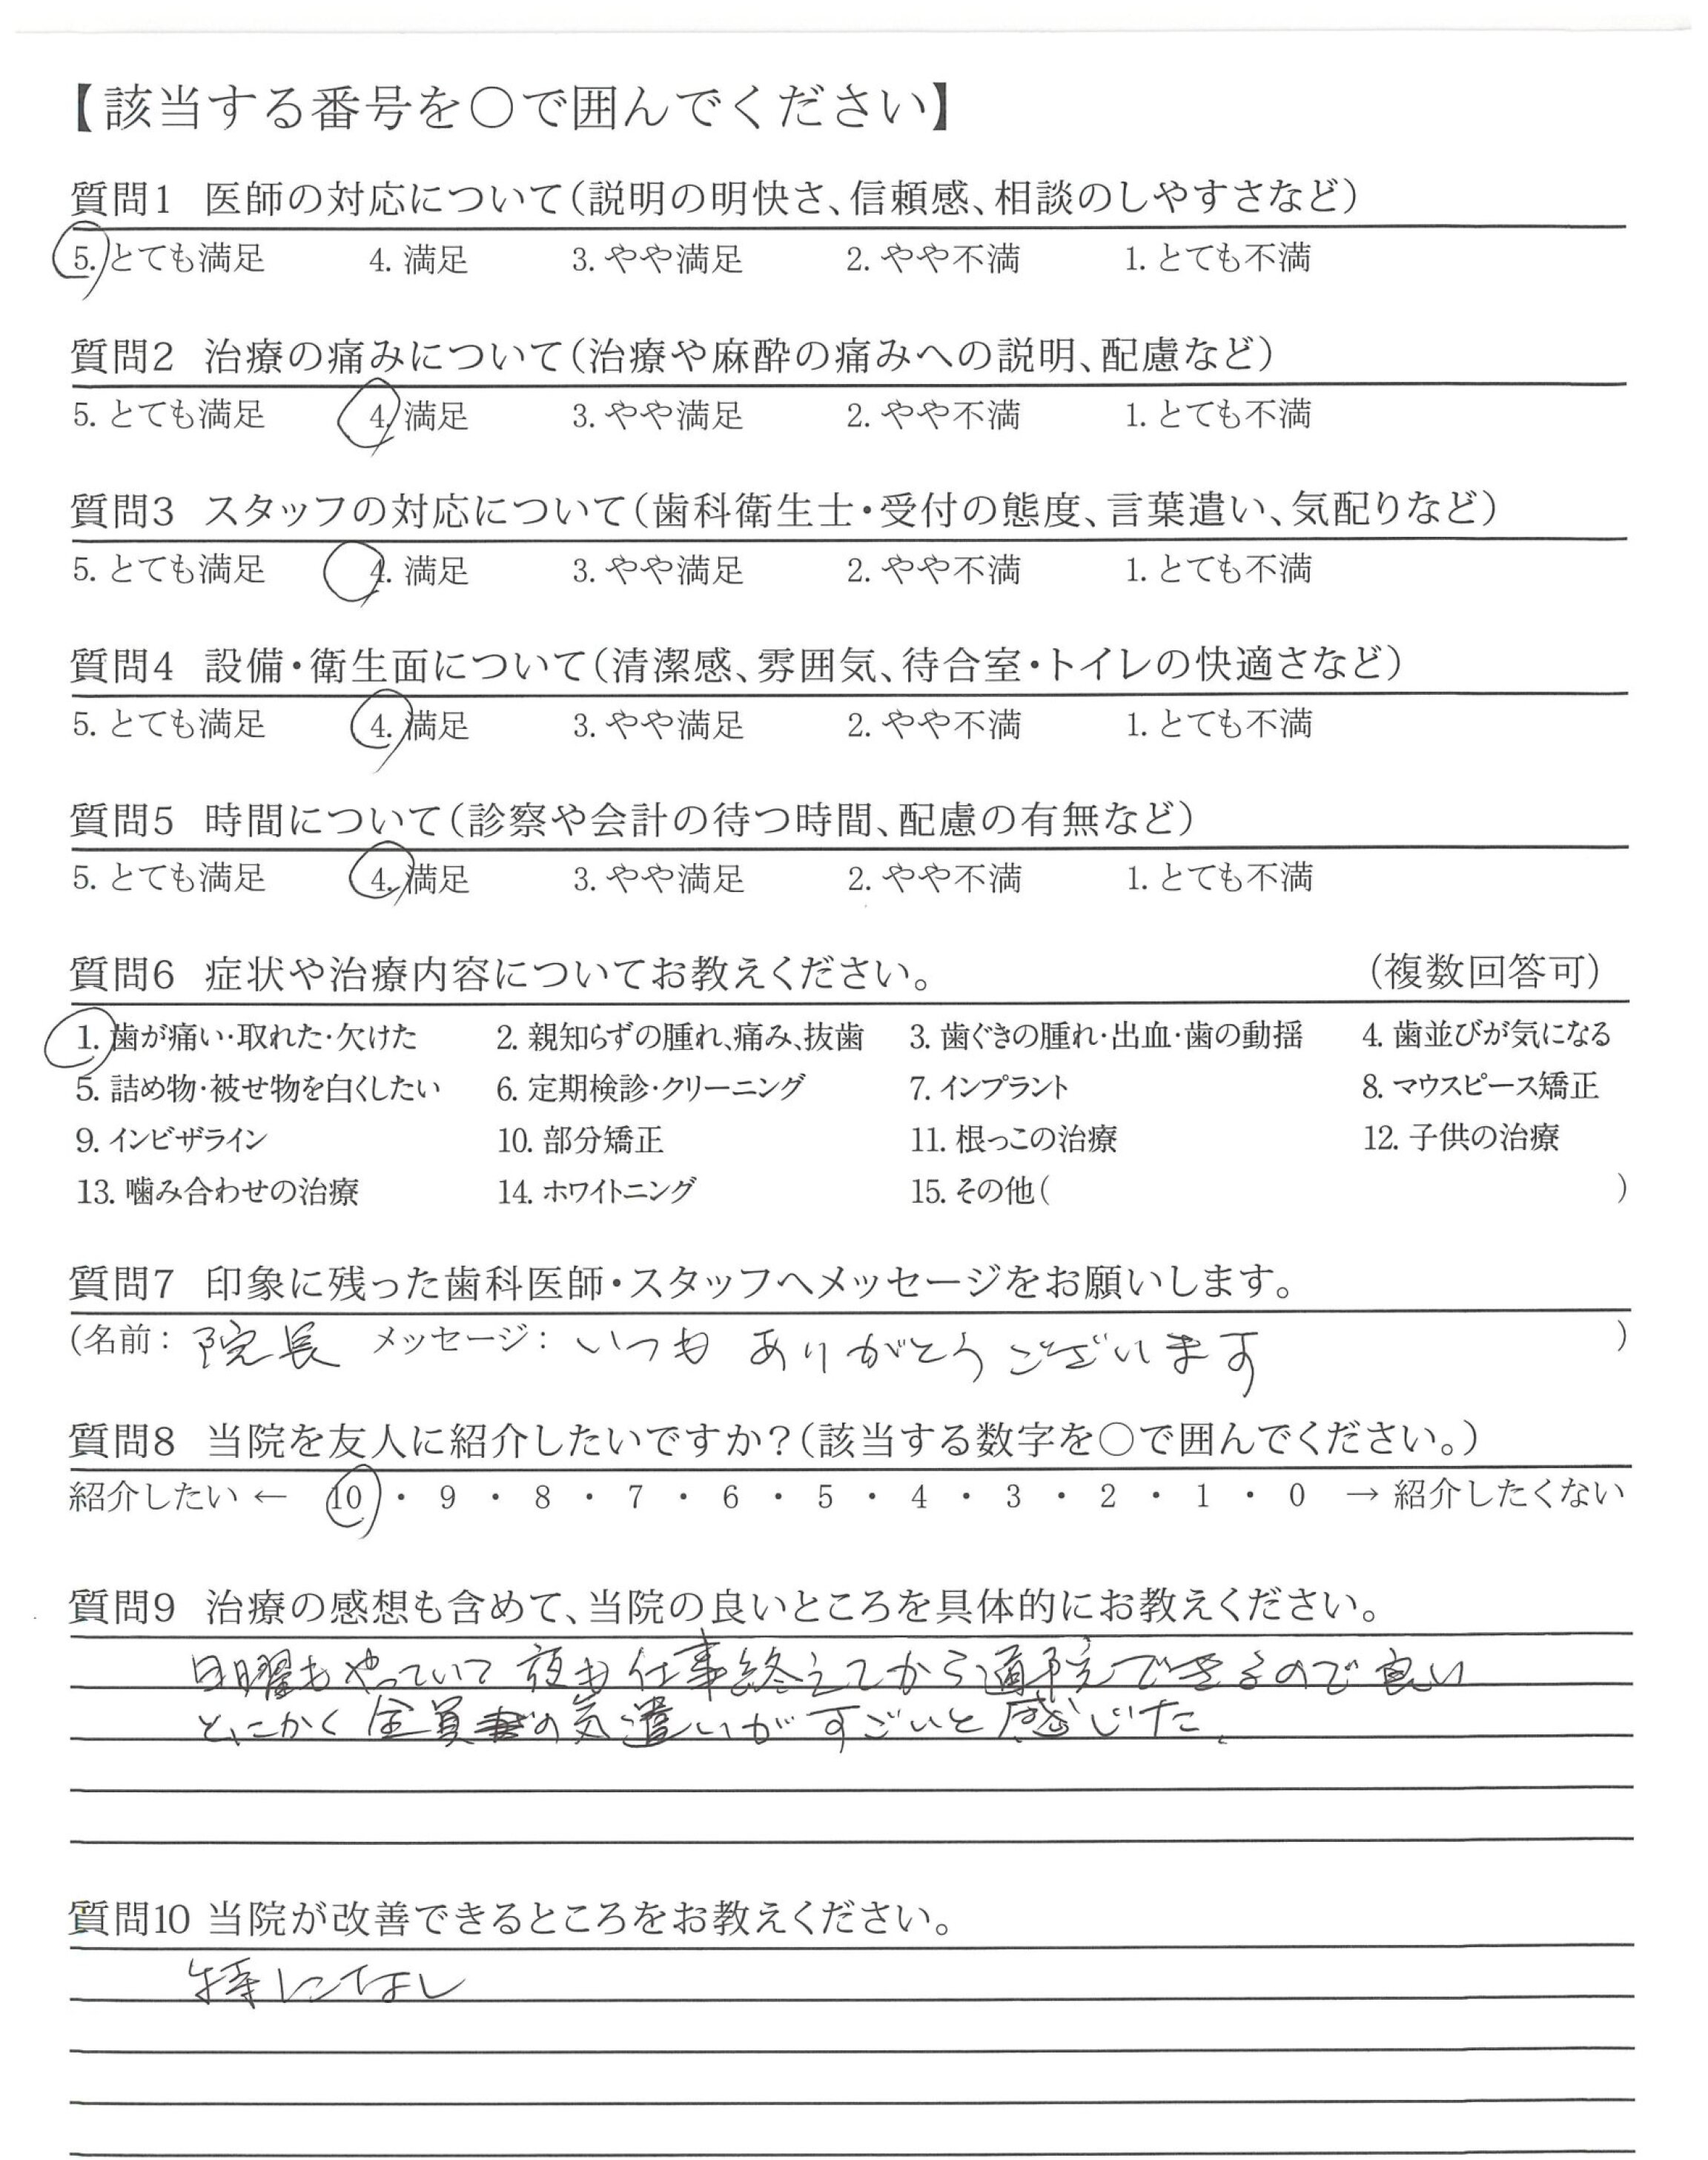 【該当する番号を○で囲んでください】
質問1 医師の対応について(説明の明快さ、信頼感、相談のしやすさなど)
5. とても満足 4. 満足 3. やや満足 2. やや不満 1. とても不満
質問2 治療の痛みについて(治療や麻酔の痛みへの説明、配慮など)
5. とても満足 4. 満足 3. やや満足 2. やや不満 1. とても不満
質問3 スタッフの対応について(歯科衛生士・受付の態度、言葉遣い、気配りなど)
5. とても満足 4. 満足 3. やや満足 2. やや不満 1. とても不満
質問4 設備・衛生面について(清潔感、雰囲気、待合室・トイレの快適さなど)
5. とても満足 4. 満足 3. やや満足 2. やや不満 1. とても不満
質問5 時間について(診察や会計の待つ時間、配慮の有無など)
5. とても満足 4. 満足 3. やや満足 2. やや不満 1. とても不満
質問6 症状や治療内容についてお教えください。 (複数回答可)
1. 歯が痛い・取れた・欠けた 2. 親知らずの腫れ、痛み、抜歯 3. 歯ぐきの腫れ・出血・歯の動揺 4. 歯並びが気になる
5. 詰め物・被せ物を白くしたい 6. 定期検診・クリーニング 7. インプラント 8. マウスピース矯正
9. インビザライン 10. 部分矯正 11. 根っこの治療 12. 子供の治療
13. 噛み合わせの治療 14. ホワイトニング 15. その他( )
質問7 印象に残った歯科医師・スタッフへメッセージをお願いします。
(名前: 院長 メッセージ: いつも ありがとうございます )
質問8 当院を友人に紹介したいですか?(該当する数字を○で囲んでください。)
紹介したい ← 10 ・ 9 ・ 8 ・ 7 ・ 6 ・ 5 ・ 4 ・ 3 ・ 2 ・ 1 ・ 0 → 紹介したくない
質問9 治療の感想も含めて、当院の良いところを具体的にお教えください。
日曜もやっていて 夜も仕事終えてから通院できるので良い
とにかく全員の気遣いがすごいと感じた。
質問10 当院が改善できるところをお教えください。
特になし